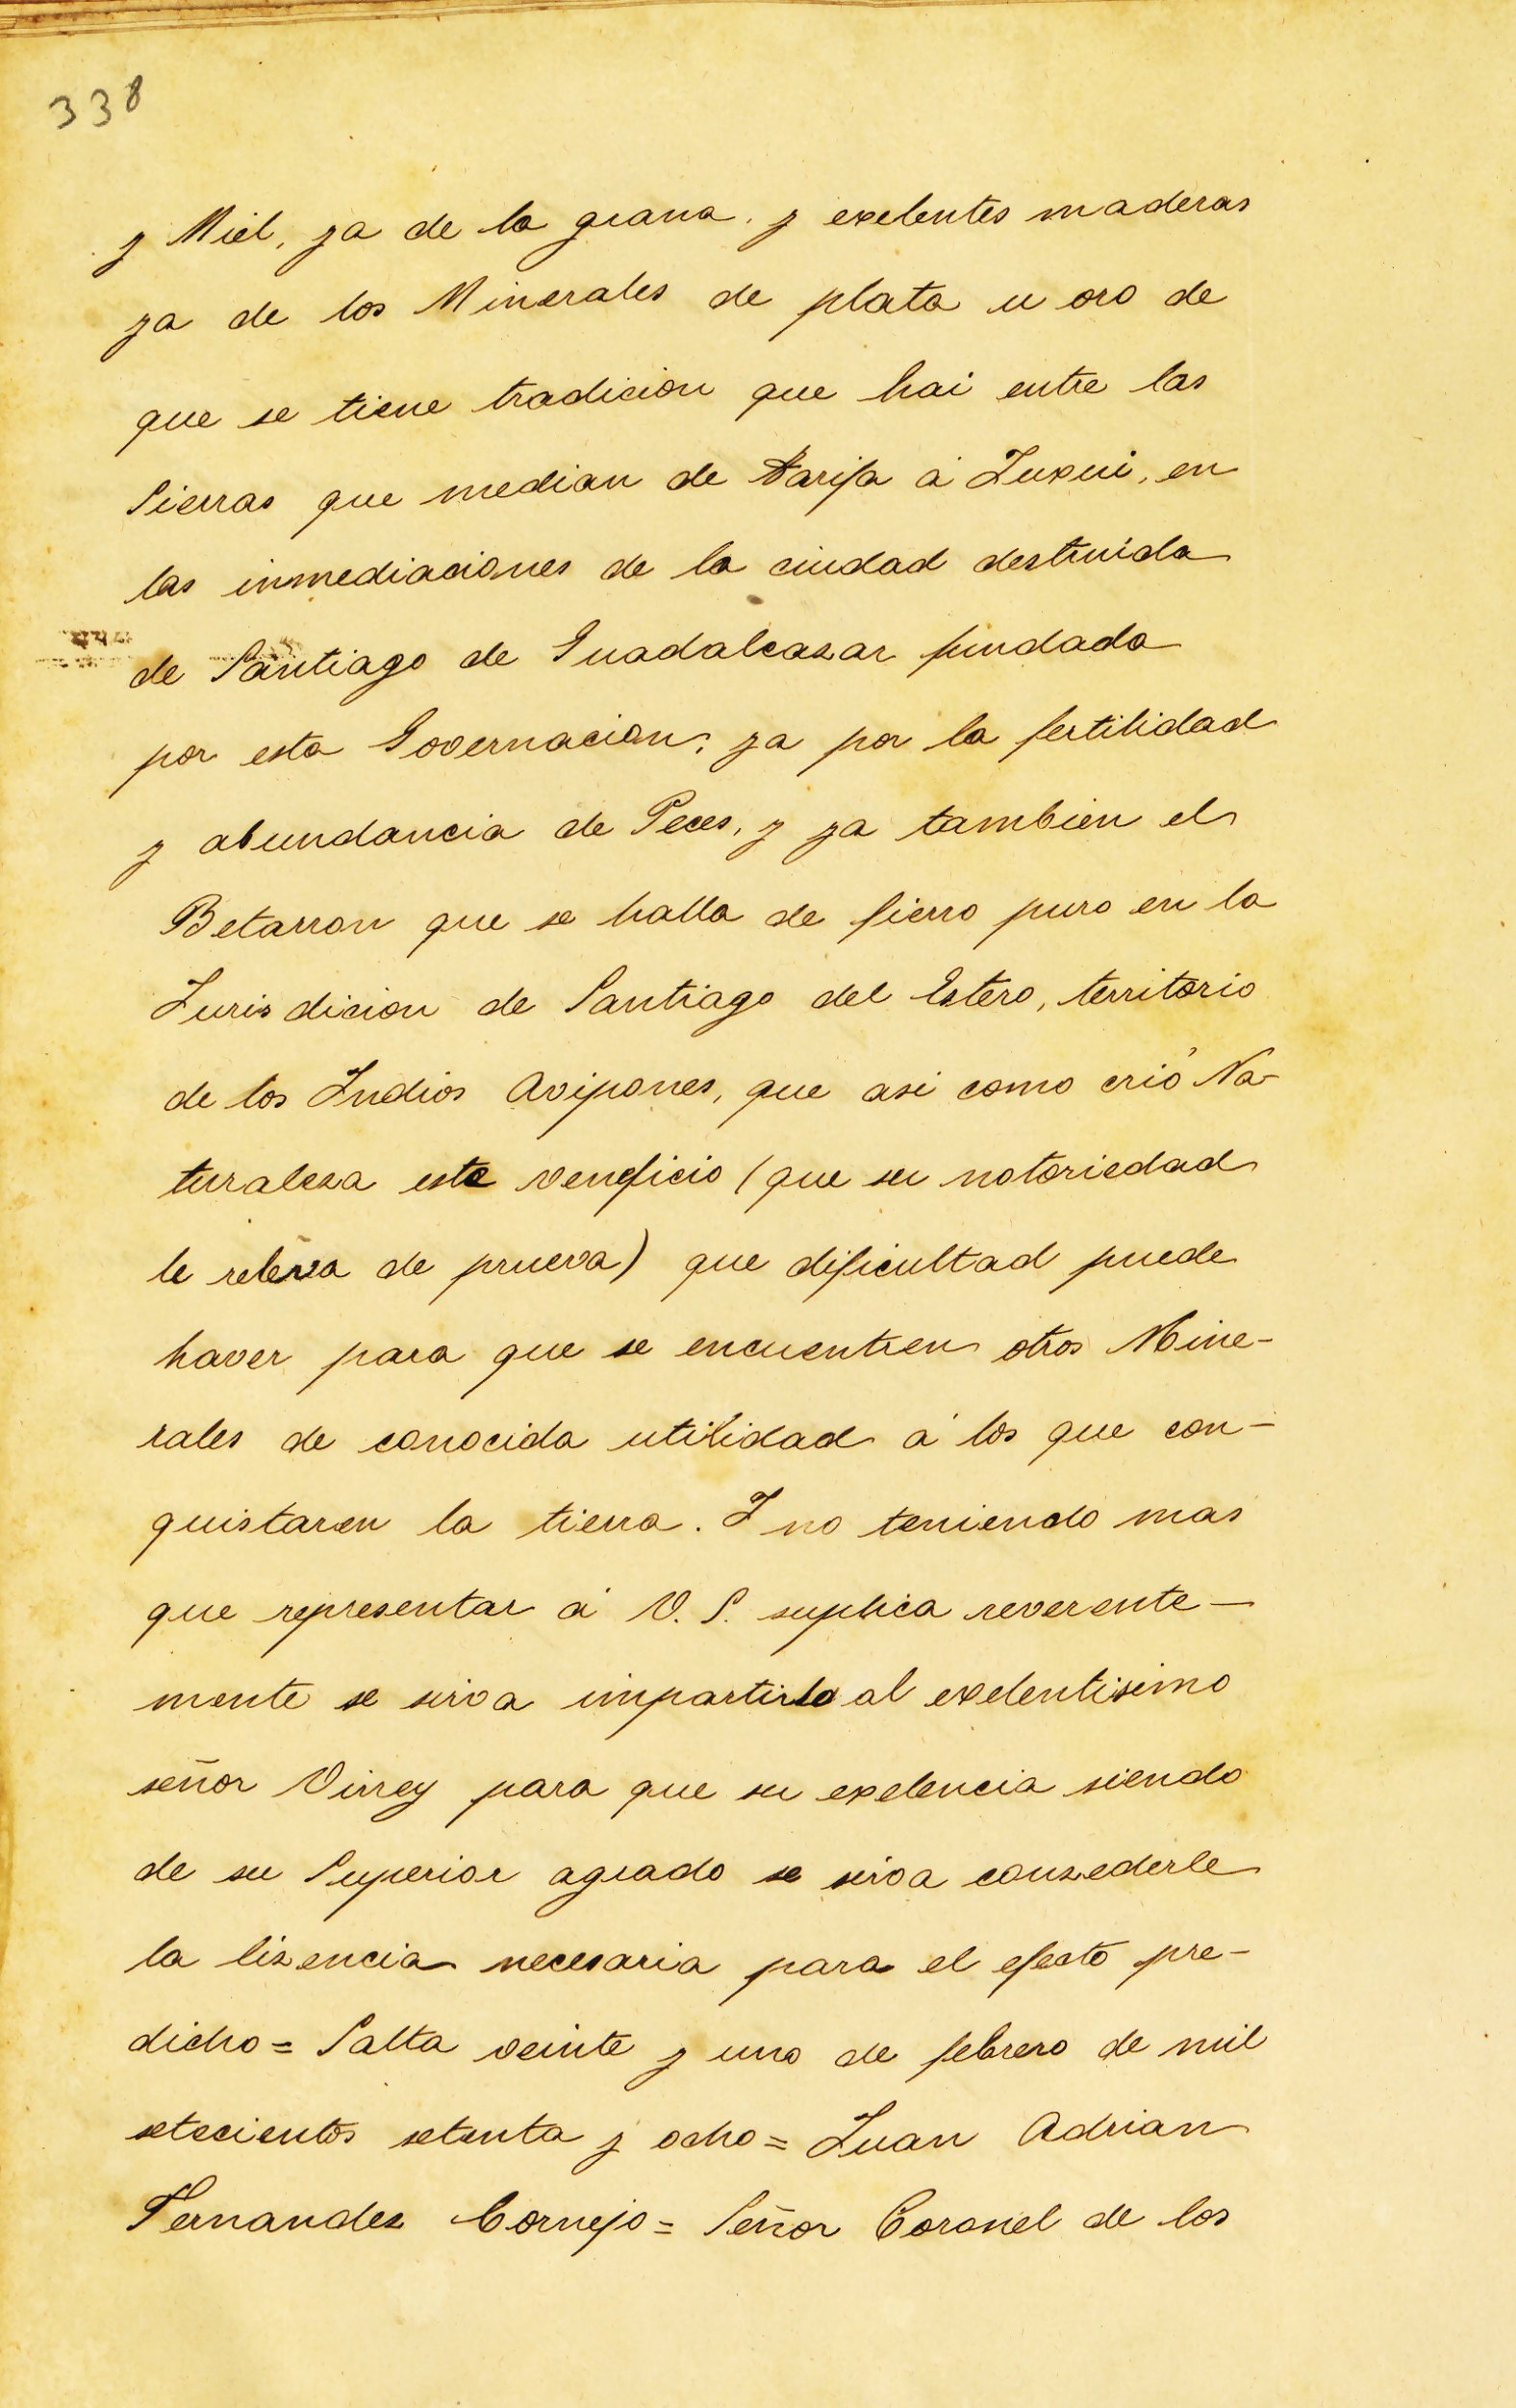 338
y Miel, ya de la grana, y exelentes maderas
ya de los Minerales de plata u oro de
que se tiene tradicion que hai entre las
Sierras que median de Tarija á Juxui, en
las inmediaciones de la ciudad destruida
de Santiago de Guadalcasar fundada
por esta Governacion; ya por la fertilidad
y abundancia de Peces, y ya tambien el
Betarron que se halla de fierro puro en la
Jurisdicion de Santiago del Estero, territorio
de los Indios Avipones, que asi como crió Na-
turalesa este veneficio (que su notoriedad
le releva de prueva) que dificultad puede
haver para que se encuentren otros Mine-
rales de conocida utilidad á los que con-
quistaren la tierra. I no teniendo mas
que representar á V. S. suplica reverente-
mente se sirva impartirla al exelentisimo
señor Virrey para que su exelencia siendo
de su Superior agrado se sirva conzederle
la lizencia necesaria para el efecto pre-
dicho = Salta veinte y uno de febrero de mil
setecientos setenta y ocho = Juan Adrian
Fernandez Cornejo = Señor Coronel de los